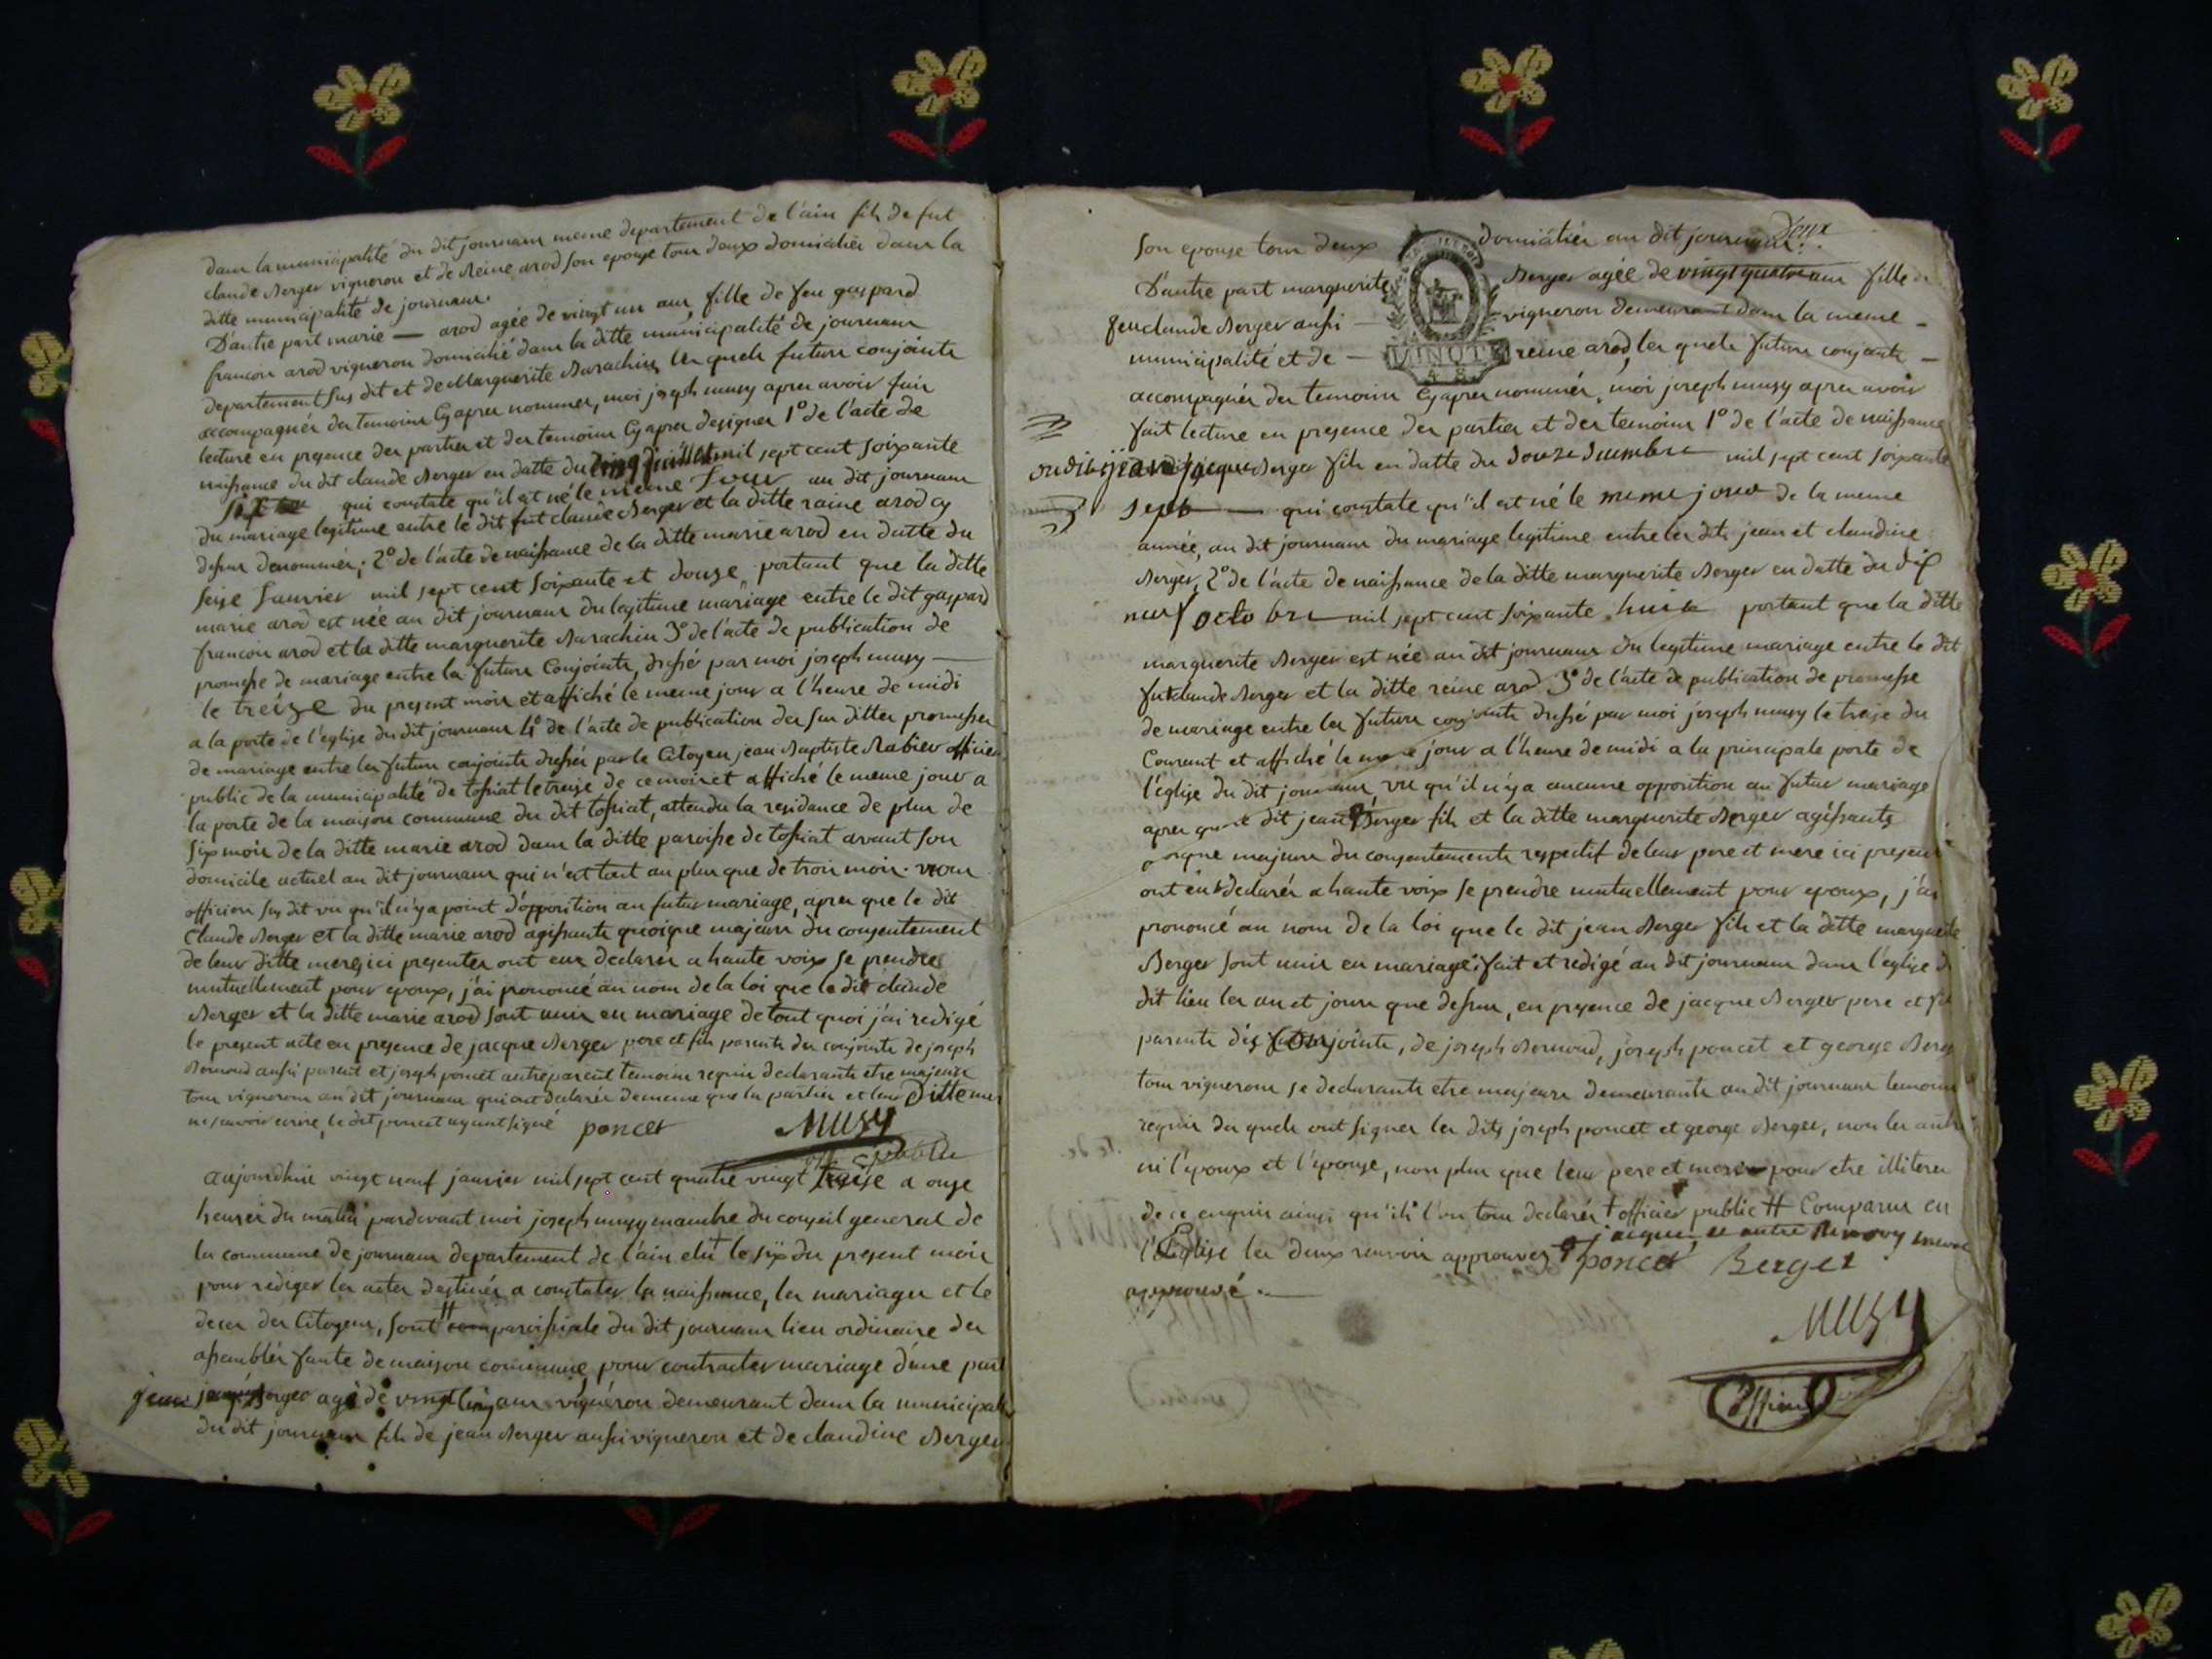 dans la municipalité du dit journans meme departement de l'ain fils de fut
claude Berger vigneron et de Reine arod son epouse tous deux domiciliés dans la
ditte municipalité de journans.
D'autre part marie — arod agée de vingt un ans, fille de feu gaspard
françois arod vigneron domicilié dans la ditte municipalité de journans
departement sus dit et de Marguerite Barachin les quels futurs conjoints
accompagnés des temoins cy apres nommes, moi joseph musy apres avoir fait
lecture en presence des parties et des temoins cy apres designes 1° de l'acte de
naissance du dit claude Berger en datte du cinq juillet mil sept cent soixante
six qui constate qu'il est né le meme jour au dit journans
du mariage legitime entre le dit fut claude Berger et la ditte raine arod cy
dessus denommés; 2° de l'acte de naissance de la ditte marie arod en datte du
seise janvier mil sept cent soixante et douze portant que la ditte
marie arod est née au dit journans du legitime mariage entre le dit gaspard
françois arod et la ditte marguerite Barachin 3° de l'acte de publication de
promesse de mariage entre les futurs Conjoints, dressé par moi joseph musy —
le treize du present mois et affiché le meme jour a l'heure de midi
a la porte de l'eglise du dit journans 4° de l'acte de publication des sus dittes promesses
de mariage entre les futurs conjoints dressés par le Citoyen jean Baptiste Rabier officier
public de la municipalité de tossiat le treise de ce mois et affiché le meme jour a
la porte de la maison commune du dit tossiat, attendu la residance de plus de
six mois de la ditte marie arod dans la ditte paroisse de tossiat avant son
domicile actuel au dit journans qui n'est tout au plus que de trois mois. nous
officier sus dit vu qu'il n'y a point d'opposition au futur mariage, apres que le dit
Claude Berger et la ditte marie arod agissants quoique majeurs du consentement
de leurs dittes meres ici presentes ont eus declarer a haute voix se prendre
mutuellement pour epoux, j'ai prononcé au nom de la loi que le dit claude
Berger et la ditte marie arod sont unis en mariage de tout quoi j'ai redigé
le present acte en presence de jacque Berger pere et fils parents du conjoints de joseph
Bernoud aussi parent et joseph poncet autre parent temoins requis declarants etre majeurs
tous vignerons au dit journans qui ont declarés de meme que les parties et leurs Dittes meres
ne scavoir ecrire, le dit poncet ayant signé poncet Musy
off. public
aujourdhui vingt neuf janvier mil sept cent quatre vingt treise a onze
heures du matin pardevant moi joseph musy membre du conseil general de
la commune de journans departement de l'ain elu † le six du present mois
pour rediger les actes destinés a constater les naissance, les mariages et le
deces des Citoyens, sont # paroissiale du dit journans lieu ordinaire des
assemblés faute de maison commune, pour contracter mariage d'une part
jean Berger agé de vingt cinq ans vigneron demeurant dans la municipalité
du dit journans fils de jean Berger aussi vigneron et de claudine Berger
son epouse tous deux domiciliés au dit journans. deux
D'autre part marguerite Berger agée de vingt quatre ans fille de
feu claude Berger aussi — vigneron demeurant dans la meme —
municipalité et de — reine arod, les quels futurs conjoints —
accompagnés des temoins cy apres nommés, moi joseph musy apres avoir
fait lecture en presence des parties et des temoins 1° de l'acte de naissance
Berger fils en datte du douze mil sept cent soixante
sept — qui constate qu'il est né le meme jour de la meme
année, au dit journans du mariage legitime entre les dits jean et claudine
Berger, 2° de l'acte de naissance de la ditte marguerite Berger en datte du dix
neuf octobre mil sept cent soixante huit portant que la ditte
marguerite Berger est née au dit journans du legitime mariage entre le dit
fut claude Berger et la ditte reine arod 3° de l'acte de publication de promesse
de mariage entre les futurs conjoints dressé par moi joseph musy le treise du
Courant et affiché le meme jour a l'heure de midi a la principale porte de
l'église du dit journans, vu qu'il n'y a aucune opposition au futur mariage
apres que le dit jean Berger fils et la ditte marguerite Berger agissants
quoique majeurs du consentements respectif de leurs pere et mere ici presents
ont eus declarés a haute voix se prendre mutuellement pour epoux, j'ai
prononcé au nom de la loi que le dit jean Berger fils et la ditte marguerite
Berger sont unis en mariage; fait et redigé au dit journans dans l'eglise du
dit lieu les an et jours que dessus, en presence de jacque Berger pere et fils
parents des conjoints, de joseph Bernoud, joseph poncet et george Berger
tous vignerons se declarants etre majeurs demeurants au dit journans temoins
requis des quels ont signer les dits joseph poncet et george Berger, non les autres
ni l'epoux et l'epouse, non plus que leurs pere et mere pour etre illiteres
de ce enquis ainsi qu'ils l'on tous declarés † officier public # Comparus en
l'Eglise les deux renvois approuvés poncet Berger
approuvé. —
Musy
Officier